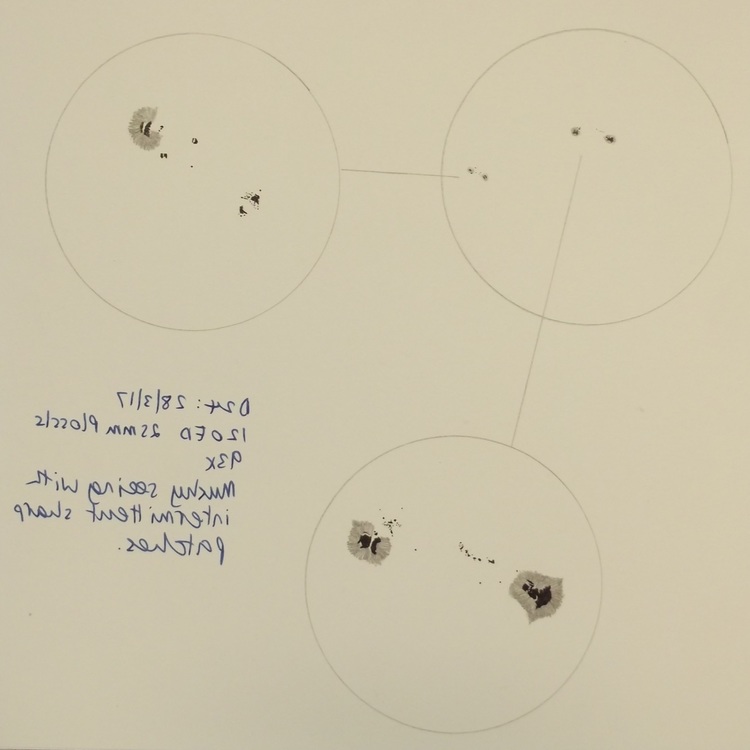 Date: 28/3/17
120ED 25mm Plossls
93x
Mushy seeing with
intermittent sharp
patches.